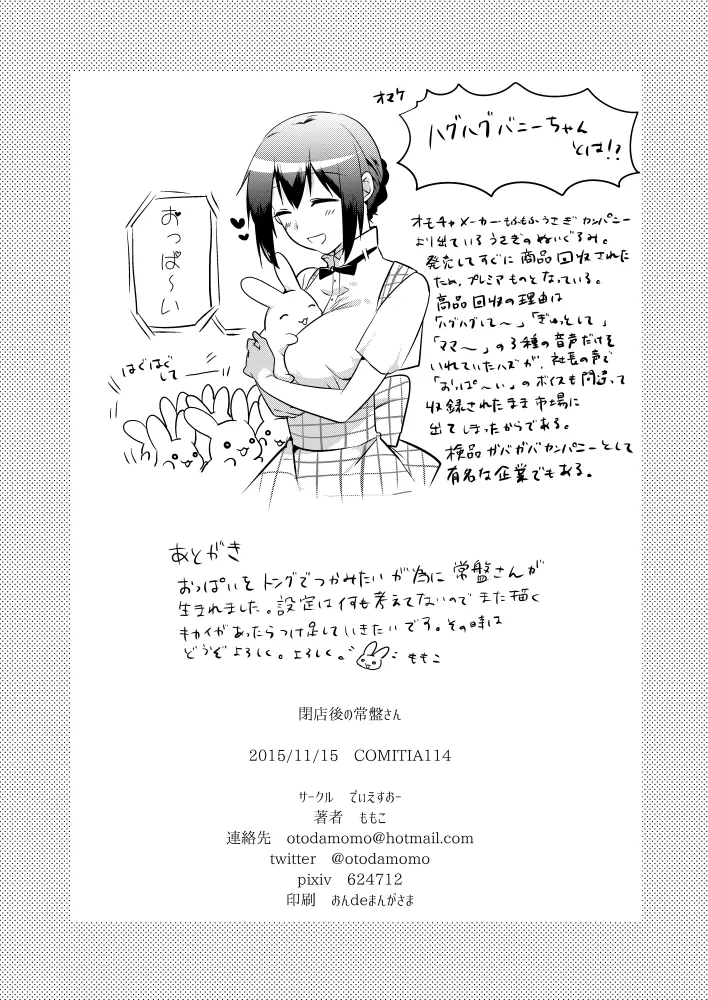 オマケ
ハグハグバニーちゃん
とは!?
オモチャメーカー・もふもふうさぎカンパニー
より出ているうさぎのぬいぐるみ。
発売してすぐに商品回収された
ため、プレミアものとなっている。
高品回収の理由は
「ハグハグして〜」「ぎゅっとして」
「ママ〜」の3種の音声だけを
いれていたハズが、社長の声で
「おっぱ〜い」のボイスも間違って
収録されたまま市場に
出てしまったからである。
検品ガバガバカンパニーとして
有名な企業でもある。
おっぱ〜い
はぐはぐ
して――
あとがき
おっぱいをトングでつかみたいが為に常盤さんが
生まれました。設定は何も考えてないのでまた描く
キカイがあったらつけ足していきたいです。その時は
どうぞよろしく。よろしく。
ももこ
閉店後の常盤さん
2015/11/15 COMITIA114
サークル でぃえすおー
著者 ももこ
連絡先 otodamomo@hotmail.com
twitter @otodamomo
pixiv 624712
印刷 おんdeまんがさま